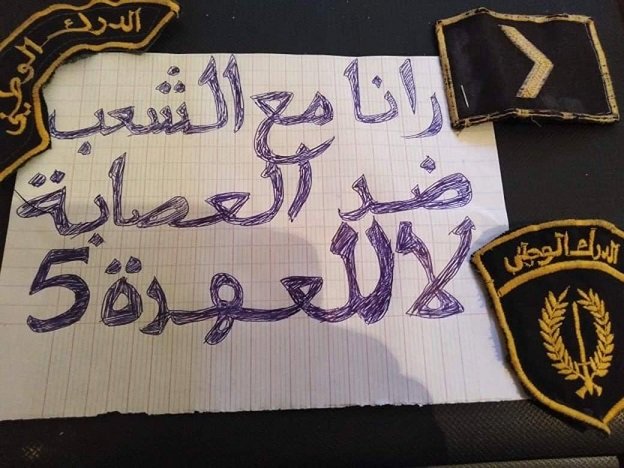 الدرك الوطني
رانا مع الشعب
ضد العصابة
لا للعهدة 5
الدرك الوطني